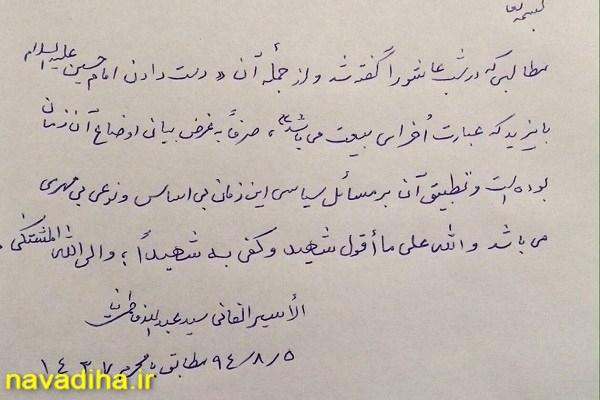 بسمه تعالی
مطالبی که در شب عاشورا گفته شد و از جمله آن « دست دادن امام حسین علیه السلام
با یزید که عبارت اُخرای بیعت می باشد»، صرفاً به غرض بیان اوضاع آن زمان
بوده است و تطبیق آن بر مسائل سیاسی این زمان بی اساس و نوعی بی مهری
می باشد و الله علی ما أقول شهید و کفی به شهیداً ؛ و الی الله المشتکی .
الأسیر الفانی سید عبدالله فاطمی نیا
۹۴/۸/۵ مطابق با محرم ۱۴۳۷
navadiha.ir